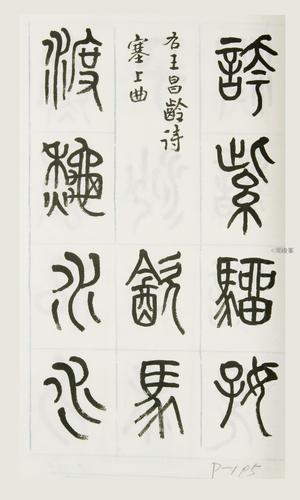 誇紫騮好
右王昌齡诗
塞上曲
飲馬
渡秌水水
P-195